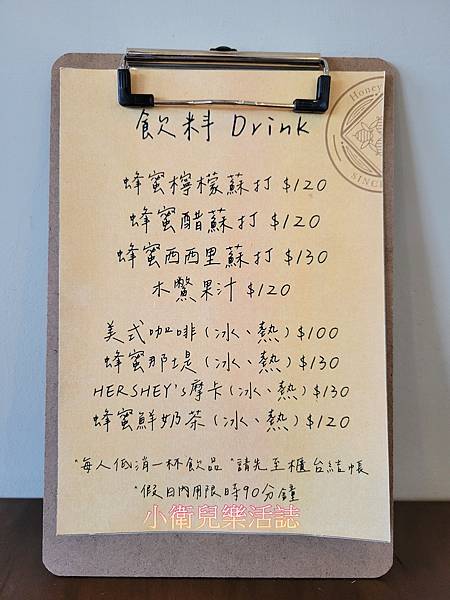 Honey
SINCE
飲料 Drink
蜂蜜檸檬蘇打 $120
蜂蜜醋蘇打 $120
蜂蜜西西里蘇打 $130
木鱉果汁 $120
美式咖啡(冰、熱) $100
蜂蜜那堤(冰、熱) $130
HERSHEY's摩卡(冰、熱) $130
蜂蜜鮮奶茶(冰、熱) $120
*每人低消一杯飲品 *請先至櫃台結帳
*假日內用限時90分鐘
小衛兒樂活誌